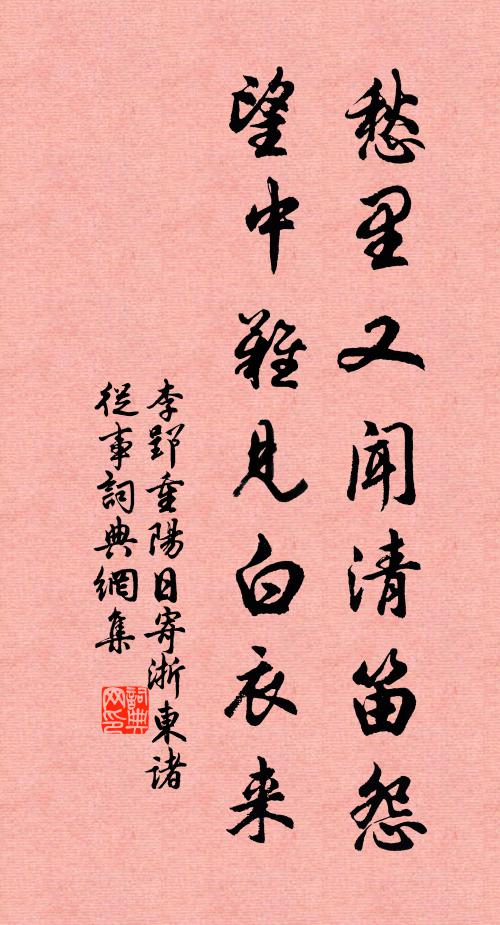 愁里又闻清笛怨
望中难见白衣来
李郢重陽日寄浙東諸
從事詞典網集
詞典
网印